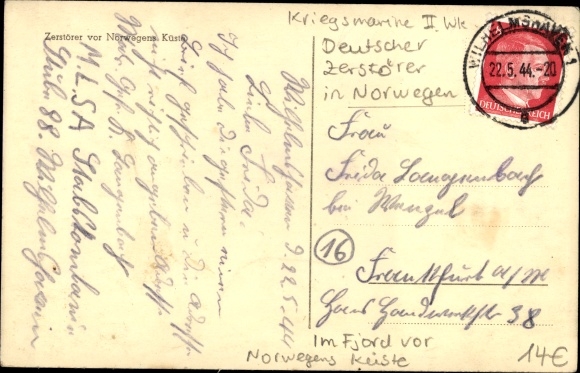 Zerstörer vor Norwegens Küste
Kriegsmarine II Wk
Deutscher
Zerstörer
in Norwegen
WILHELMSHAVEN 1
22.5.44.-20
DEUTSCHES REICH
Wilhelmshaven d. 22.5.44
Liebe Frida!
Ich habe Dir gestern einen
Brief geschrieben u. Die Adresse
nicht richtig angeben
Langenbach
M.L.S.A
Stube 88. Wilhelmshaven
Frau
Frida Langenbach
bei Wenzel
16
Frankfurt a/M
38
Im Fjord vor
Norwegens Küste
14€